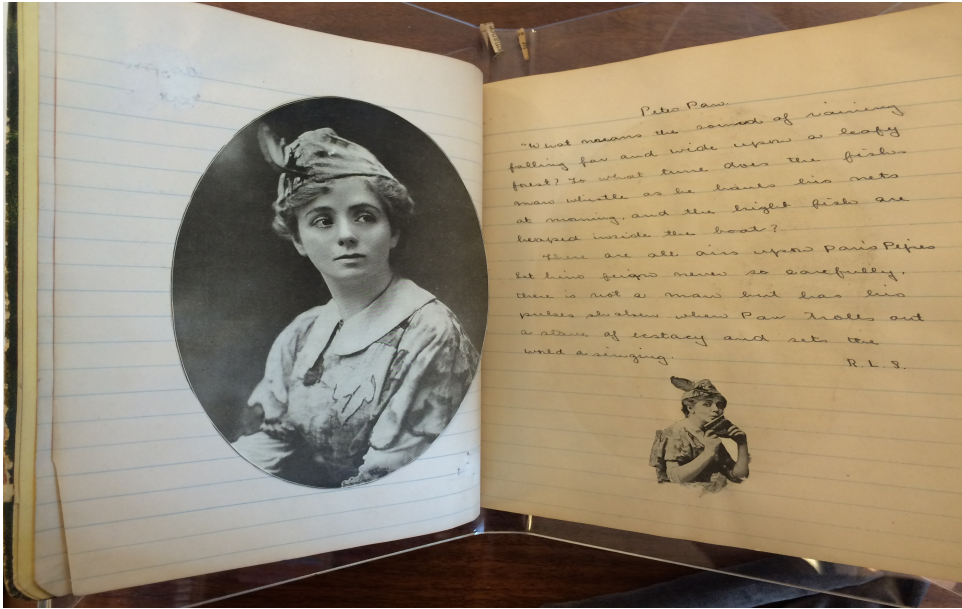 Peter Pan.
"What means the sound of raining
falling far and wide upon a leafy
forest? To what tune does the fisher
man whistle as he hauls his nets
at morning, and the bright fish are
heaped inside the boat?
These are all airs upon Pan's Pipes
Let him feign never so carefully,
there is not a man but has his
pulses shaken when Pan trolls out
a stave of ecstacy and sets the
world a singing.
R. L. S.